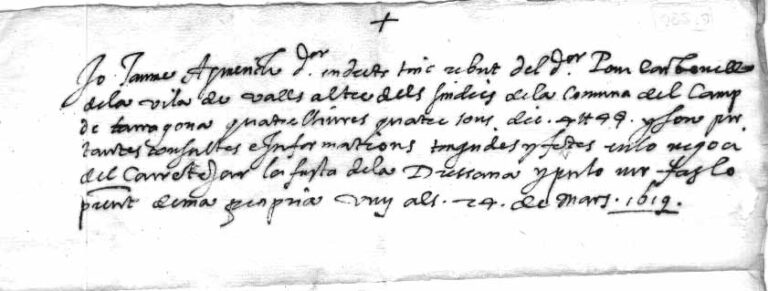 +
Jo Jaume Aguench dor. en drets tinc rebut del dor. Pau Carbonell
dela vila de valls altre dels sindics dela Comuna del Camp
de tarragona quatre lliures quatre sous dic. 4 ll 4 s. y son per
tantes consultes e Informations tingudes y fetes en lo negoci
del Carretejar la fusta dela Dressana y per lo ver fas lo
pnt dema propria vuy als. 24. de Mars. 1619.